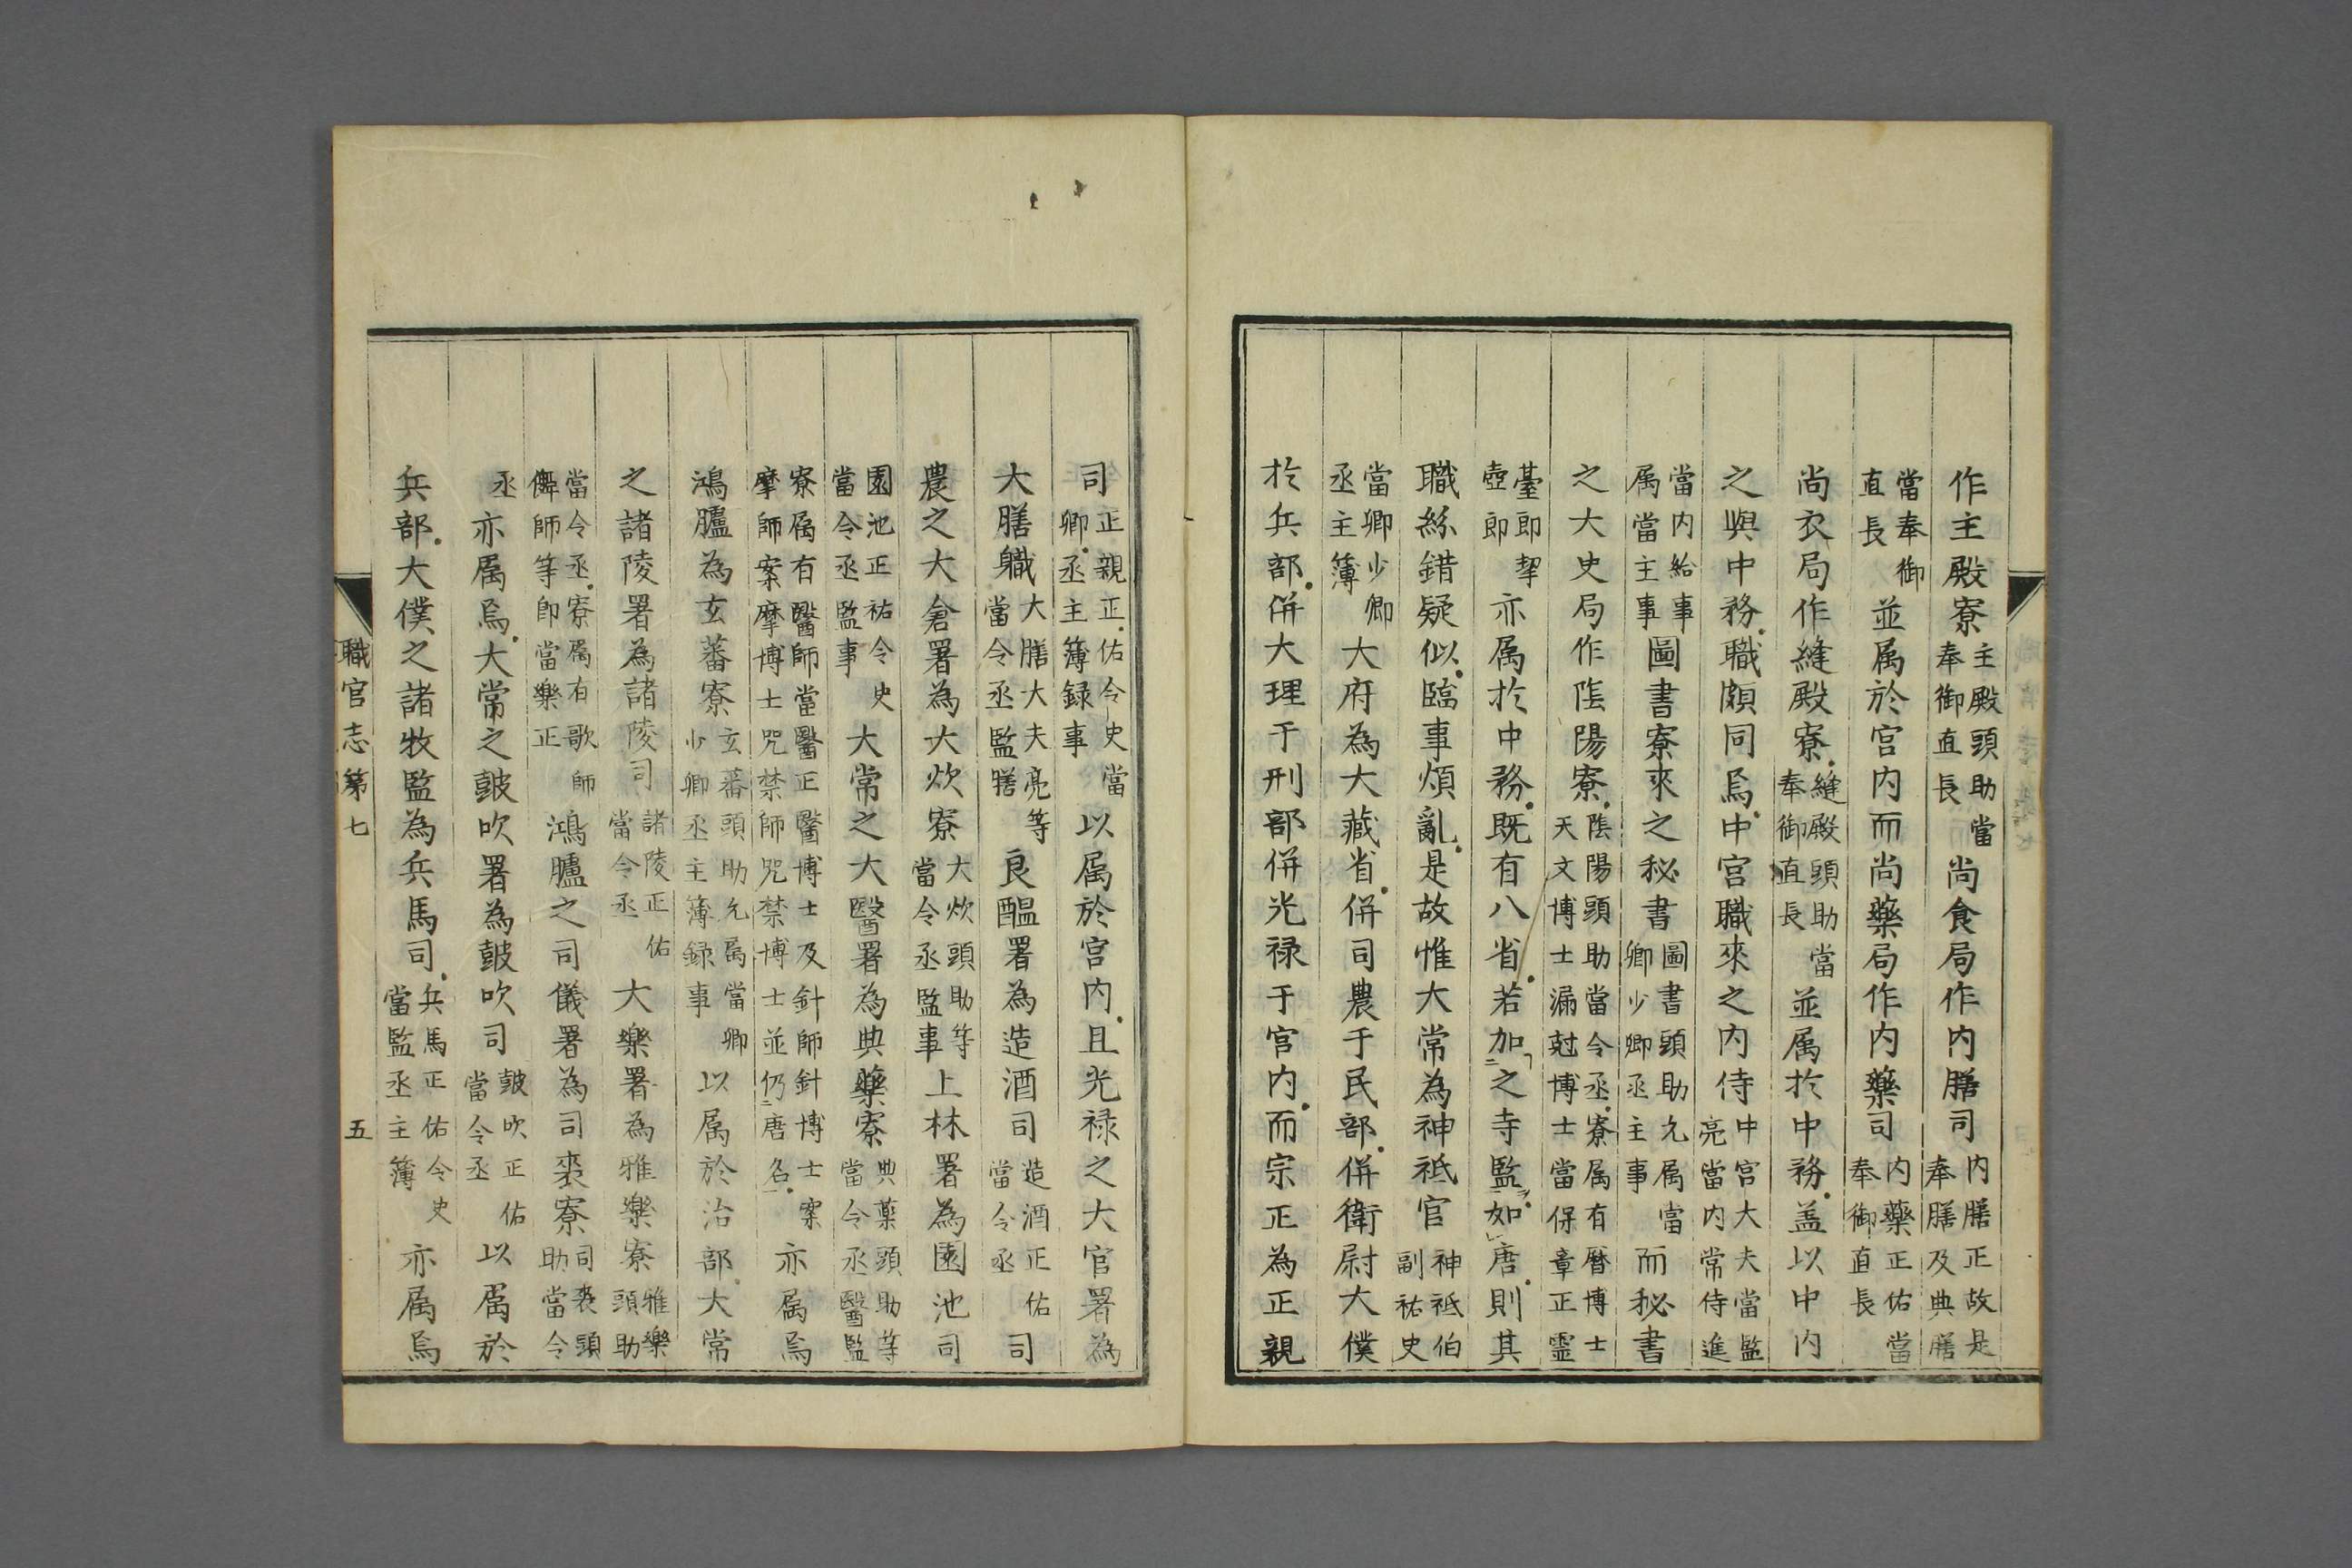 作主殿寮主殿頭助當奉御直長尚食局作内膳司内膳正故是奉膳及典膳
當奉御直長並属於宫内而尚藥局作内藥司内藥正佑當奉御直長
尚衣局作縫殿寮縫殿頭助當奉御直長並属於中務盖以中内
之與中務職頗同焉中宫職來之内侍中宫大夫當監亮當内常侍進
當内給事属當主事圖書寮來之秘書圖書頭助允属當卿少卿丞主事而秘書
之大史局作陰陽寮陰陽頭助當令丞寮属有暦博士天文博士漏尅博士當保章正靈
臺郎挈壺郎亦属於中務既有八省若加之寺監如唐則其
職絲錯疑似臨事煩亂是故惟大常為神祇官神祇伯副祐史
當卿少卿丞主簿大府為大藏省併司農于民部併衛尉大僕
於兵部併大理于刑部併光禄于宫内而宗正為正親
司正親正佑令史當卿丞主簿録事以属於宫内且光禄之大官署為
大膳職大膳大夫亮等當令丞監膳良醞署為造酒司造酒正佑當令丞司
農之大倉署為大炊寮大炊頭助等當令丞監事上林署為園池司
園池正祐令史當令丞監事大常之大醫署為典藥寮典藥頭助等當令丞醫監
寮属有醫師當醫正醫博士及針師針博士案摩師案摩博士咒禁師咒禁博士並仍唐名亦属焉
鴻臚為玄蕃寮玄蕃頭助允属當卿少卿丞主簿録事以属於治部大常
之諸陵署為諸陵司諸陵正佑當令丞大樂署為雅樂寮雅樂頭助
當令丞寮属有歌師儛師等即當樂正鴻臚之司儀署為司喪寮司喪頭助當令
丞亦属焉大常之鼓吹署為鼓吹司鼓吹正佑當令丞以属於
兵部大僕之諸牧監為兵馬司兵馬正佑令史當監丞主簿亦属焉
職官志第七 五